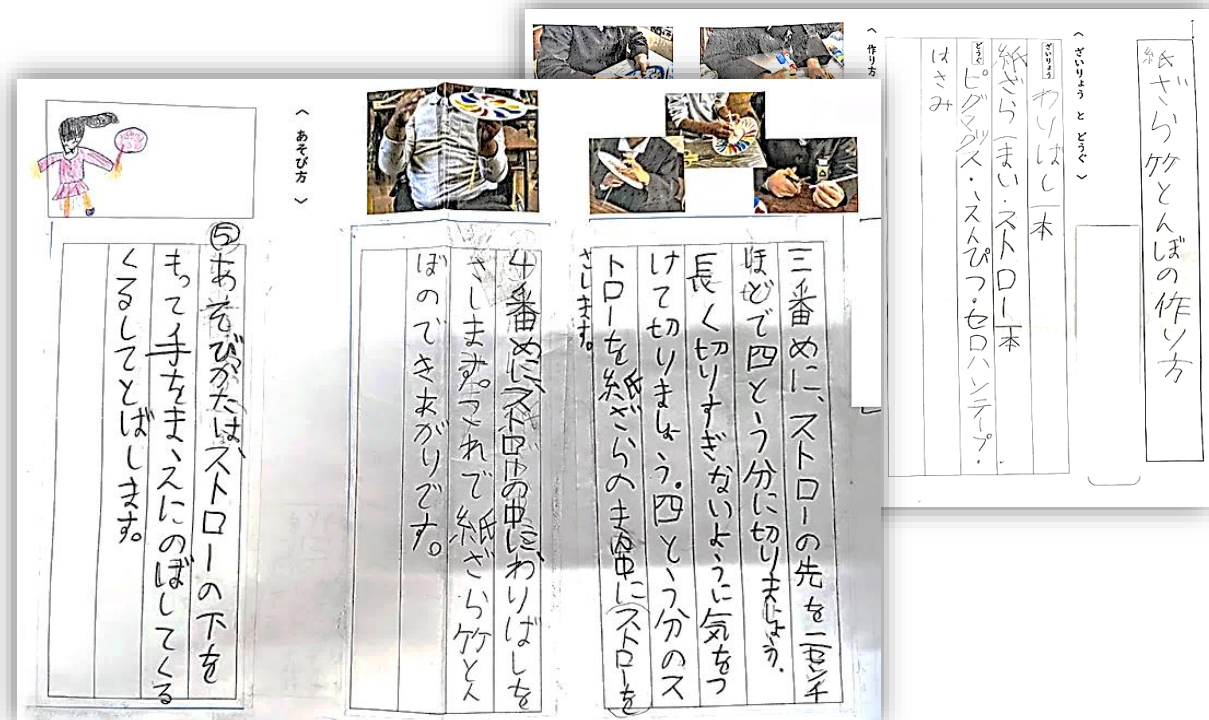 紙ざら竹とんぼの作り方
〈 ざいりょう と どうぐ 〉
ざいりょう わりばし一本
紙ざら一まい・ストロー一本
どうぐ ピグマックス・えんぴつ・セロハンテープ・
はさみ
〈 作り方
三番めに、ストローの先を一センチ
ほどで四とう分に切りましょう。
長く切りすぎないように気をつ
けて切りましょう。四とう分のス
トローを紙ざらのま中にストローを
さします。
4番めにストローの中に、わりばしを
さします。これで紙ざら竹とん
ぼのできあがりです。
〈 あそび方 〉
⑤あそびかたは、ストローの下を
もって手をまえにのばしてくる
くるしてとばします。